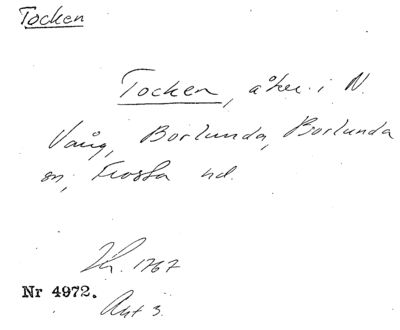 Tocken
Tocken, åker i N.
Vång, Borlunda, Borlunda
sn, Frosta hd.
1767
Nr 4972.
Akt 3.